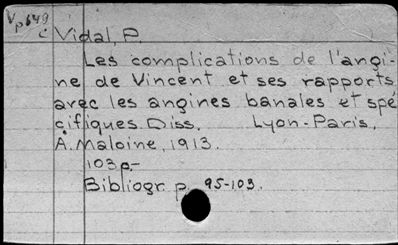 Vp649
c
Vidal, P.
Les complications de l'angi-
ne de Vincent et ses rapports
avec les angines banales et spé
cifiques. Diss. Lyon-Paris,
A. Maloine, 1913.
103 p.-
Bibliogr. p. 95-103.